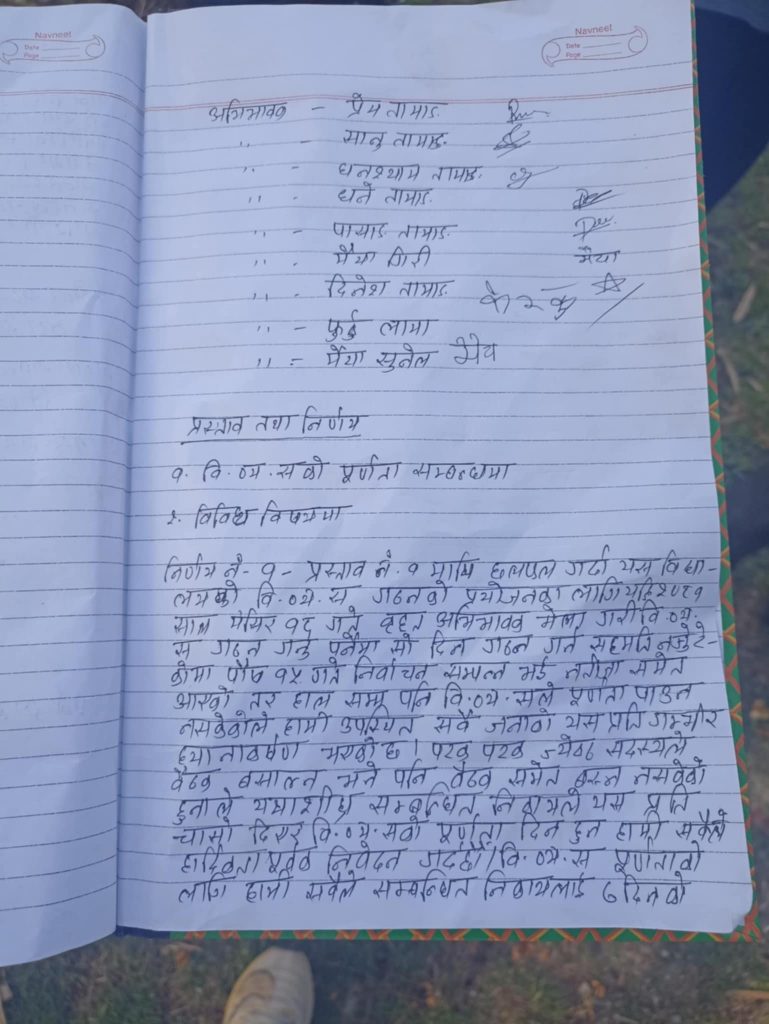 Navneet
Date
Page
Navneet
Date
Page
अभिभावक - प्रेम तामाङ
,, - सानु तामाङ
,, - घनश्याम तामाङ
,, - धने तामाङ
,, - पासाङ तामाङ
,, - मैया गिरी मैया
,, - दिनेश तामाङ
,, - फुर्बु लामा
,, - मैया सुनेल
प्रस्ताव तथा निर्णय
१. वि.व्य.सको पूर्णता सम्बन्धमा
२. विविध विषयमा
निर्णय नं- १ - प्रस्ताव नं. १ माथि छलफल गर्दा यस विद्या-
लयको वि.व्य.स गठनको प्रयोजनका लागि यहि २०८१
साल मंसिर १८ गते वृहत अभिभावक भेला गरी वि.व्य.
स गठन गर्नु पर्नेमा सो दिन गठन गर्न सहमति नजुटे-
कोमा पौष १५ गते निर्वाचन सम्पन्न भई नतीजा समेत
आएको तर हाल सम्म पनि वि.व्य.सले पूर्णता पाउन
नसकेकोले हामी उपस्थित सवै जनाको यस प्रति गम्भीर
ध्यानाकर्षण भएको छ। पटक पटक ज्येष्ठ सदस्यले
वैठक बसाल्न भने पनि वैठक समेत बस्न नसकेको
हुनाले यथाशीघ्र सम्बन्धित निकायले यस प्रति
चासो दिएर वि.व्य.सको पूर्णता दिन हुन हामी सवैले
हार्दिकता पूर्वक निवेदन गर्दछौं। वि.व्य.स पूर्णताको
लागि हामी सवैले सम्बन्धित निकायलाई ७ दिनको